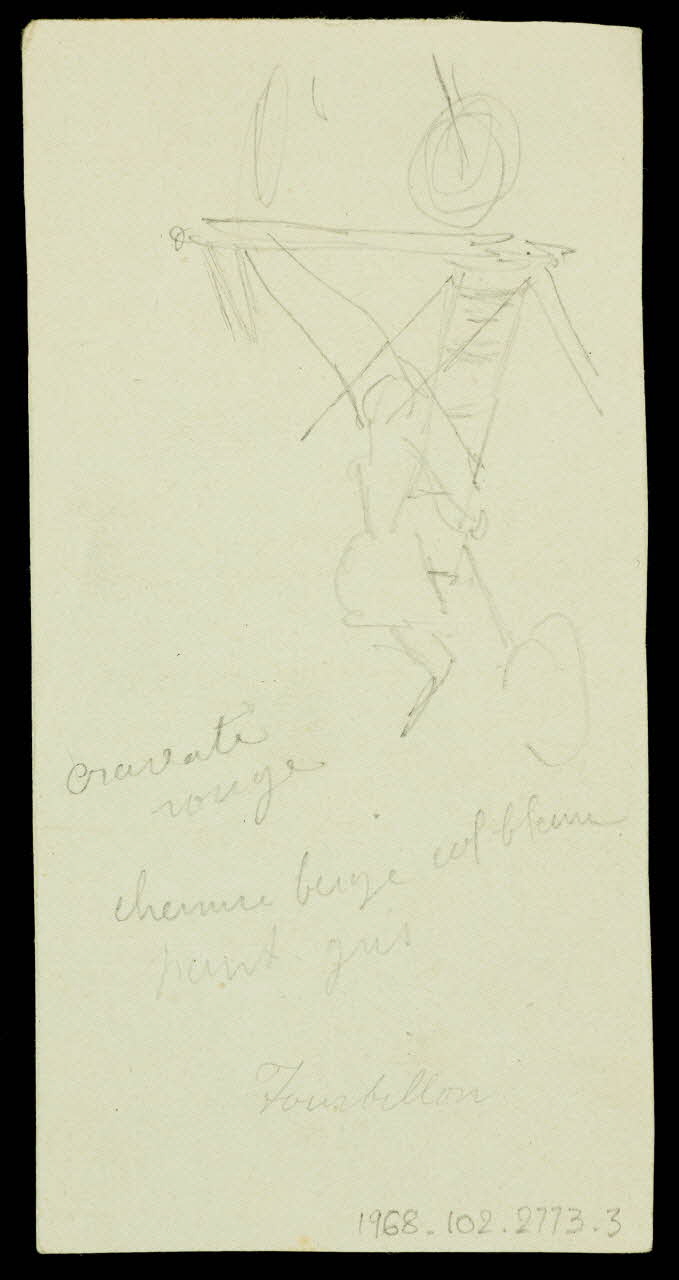 cravate
rouge
chemise beige col blanc
pant gris
Tourbillon
1968.102.2773.3